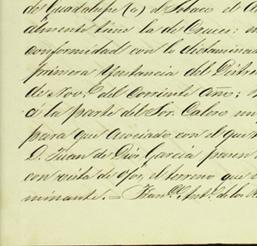 de Guadalupe (a) el Potaco el
almente tiene la de Cruces:
conformidad con lo dictamina
primera Ynstancia del Distri
de Nov.e del corriente año:
á la parte del Sor. Calvo
para que asociado con el que
D. Juan de Dios Garcia
con vista de ojos, el terreno que
minante. = Fran.co Ant.o de los